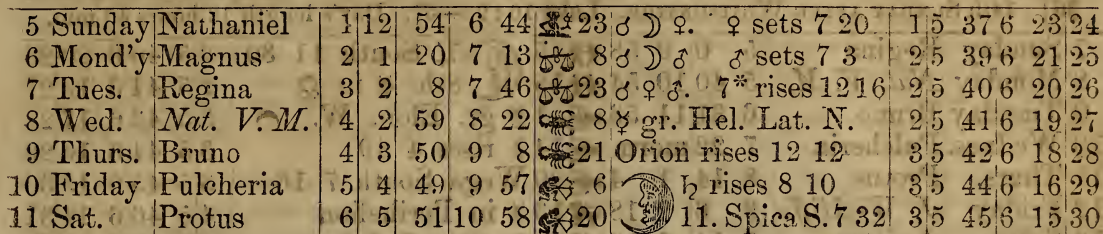 5 Sunday Nathaniel 1 12 54 6 44 ♍ 23 ☌ ☽ ♀. ♀ sets 7 20 1 5 37 6 23 24
6 Mond'y Magnus 2 1 20 7 13 ♎ 8 ☌ ☽ ♂ ♂ sets 7 3 2 5 39 6 21 25
7 Tues. Regina 3 2 8 7 46 ♎ 23 ☌ ♀ ♂. 7* rises 12 16 2 5 40 6 20 26
8 Wed. Nat. V. M. 4 2 59 8 22 ♏ 8 ☿ gr. Hel. Lat. N. 2 5 41 6 19 27
9 Thurs. Bruno 4 3 50 9 8 ♏ 21 Orion rises 12 12 3 5 42 6 18 28
10 Friday Pulcheria 5 4 49 9 57 ♐ 6 ♄ rises 8 10 3 5 44 6 16 29
11 Sat. Protus 6 5 51 10 58 ♐ 20 11. Spica S. 7 32 3 5 45 6 15 30